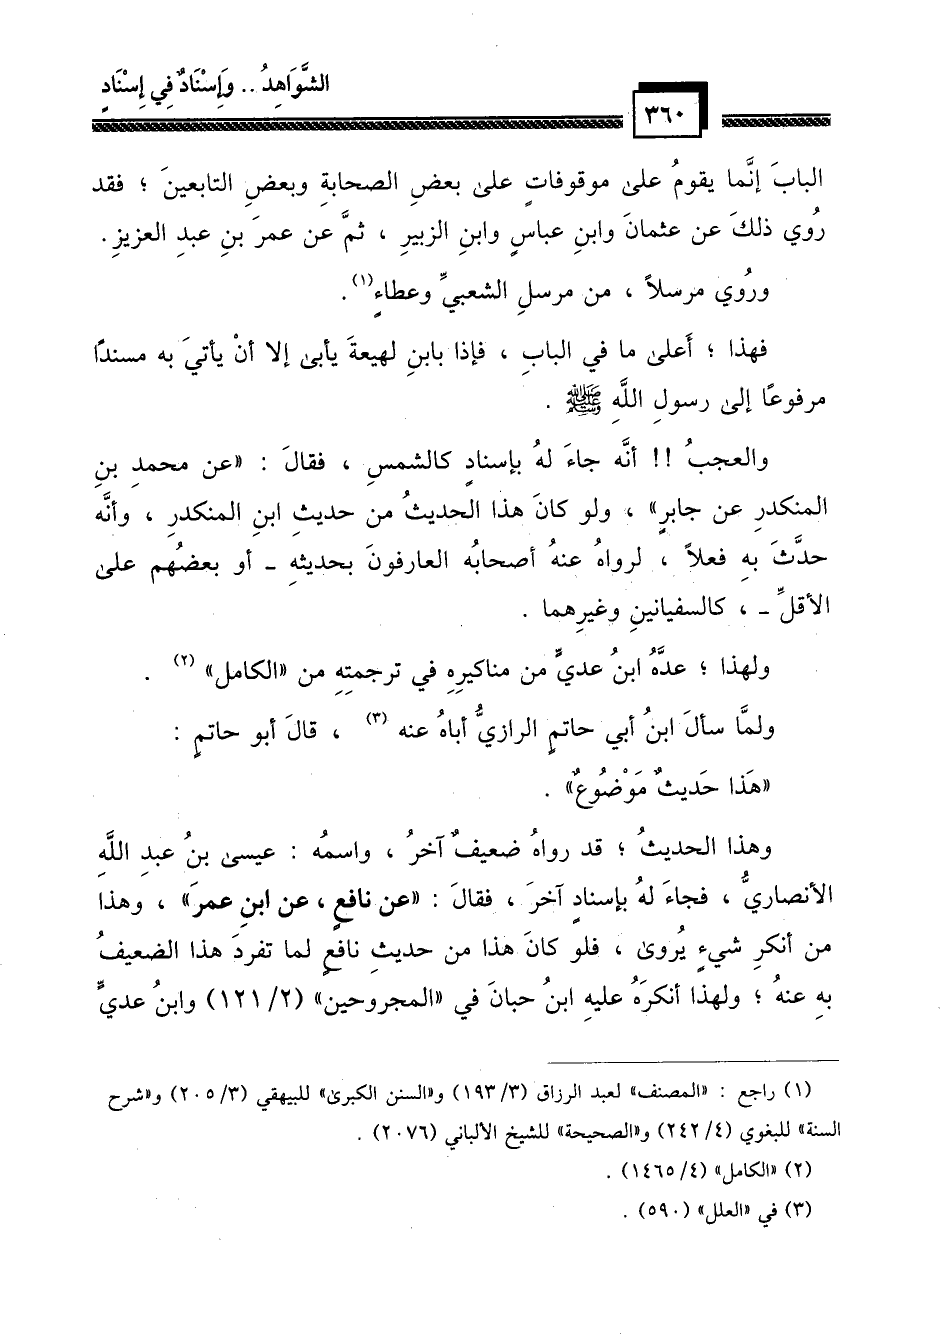 الشَّوَاهِدُ .. وَإِسْنَادٌ فِي إِسْنَادٍ
٣٦٠
البابَ إنَّما يقومُ على موقوفاتٍ على بعضِ الصحابةِ وبعضِ التابعينَ ؛ فقد
رُوي ذلكَ عن عثمانَ وابنِ عباسٍ وابنِ الزبيرِ ، ثمَّ عن عمرَ بنِ عبدِ العزيزِ .
ورُوي مرسلاً ، من مرسلِ الشعبيِّ وعطاءٍ(١) .
فهذا ؛ أَعلى ما في البابِ ، فإذا بابنِ لهيعةَ يأبى إلا أنْ يأتيَ به مسندًا
مرفوعًا إلى رسولِ اللَّهِ ﷺ .
والعجبُ !! أنَّه جاءَ لهُ بإسنادٍ كالشمسِ ، فقالَ : «عن محمدِ بنِ
المنكدرِ عن جابرٍ» ، ولو كانَ هذا الحديثُ من حديثِ ابنِ المنكدرِ ، وأنَّه
حدَّثَ بهِ فعلاً ، لرواهُ عنهُ أصحابُه العارفونَ بحديثهِ ـ أو بعضُهم على
الأقلِّ ـ ، كالسفيانينِ وغيرِهما .
ولهذا ؛ عدَّهُ ابنُ عديٍّ من مناكيرِهِ في ترجمتِهِ من «الكامل» (٢) .
ولمَّا سألَ ابنُ أبي حاتمٍ الرازيُّ أباهُ عنه (٣) ، قالَ أبو حاتمٍ :
«هَذا حَديثٌ مَوْضُوعٌ» .
وهذا الحديثُ ؛ قد رواهُ ضعيفٌ آخرُ ، واسمُه : عيسى بنُ عبدِ اللَّهِ
الأنصاريُّ ، فجاءَ لهُ بإسنادٍ آخرَ ، فقالَ : «عن نافعٍ ، عن ابنِ عمرَ» ، وهذا
من أنكرِ شيءٍ يُروى ، فلو كانَ هذا من حديثِ نافعٍ لما تفردَ هذا الضعيفُ
بهِ عنهُ ؛ ولهذا أنكرَهُ عليهِ ابنُ حبانَ في «المجروحين» (٢/ ١٢١) وابنُ عديٍّ
(١) راجع : «المصنف» لعبد الرزاق (٣/ ١٩٣) و«السنن الكبرى» للبيهقي (٣/ ٢٠٥) و«شرح
السنة» للبغوي (٤/ ٢٤٢) و«الصحيحة» للشيخ الألباني (٢٠٧٦) .
(٢) «الكامل» (٤/ ١٤٦٥) .
(٣) في «العلل» (٥٩٠) .